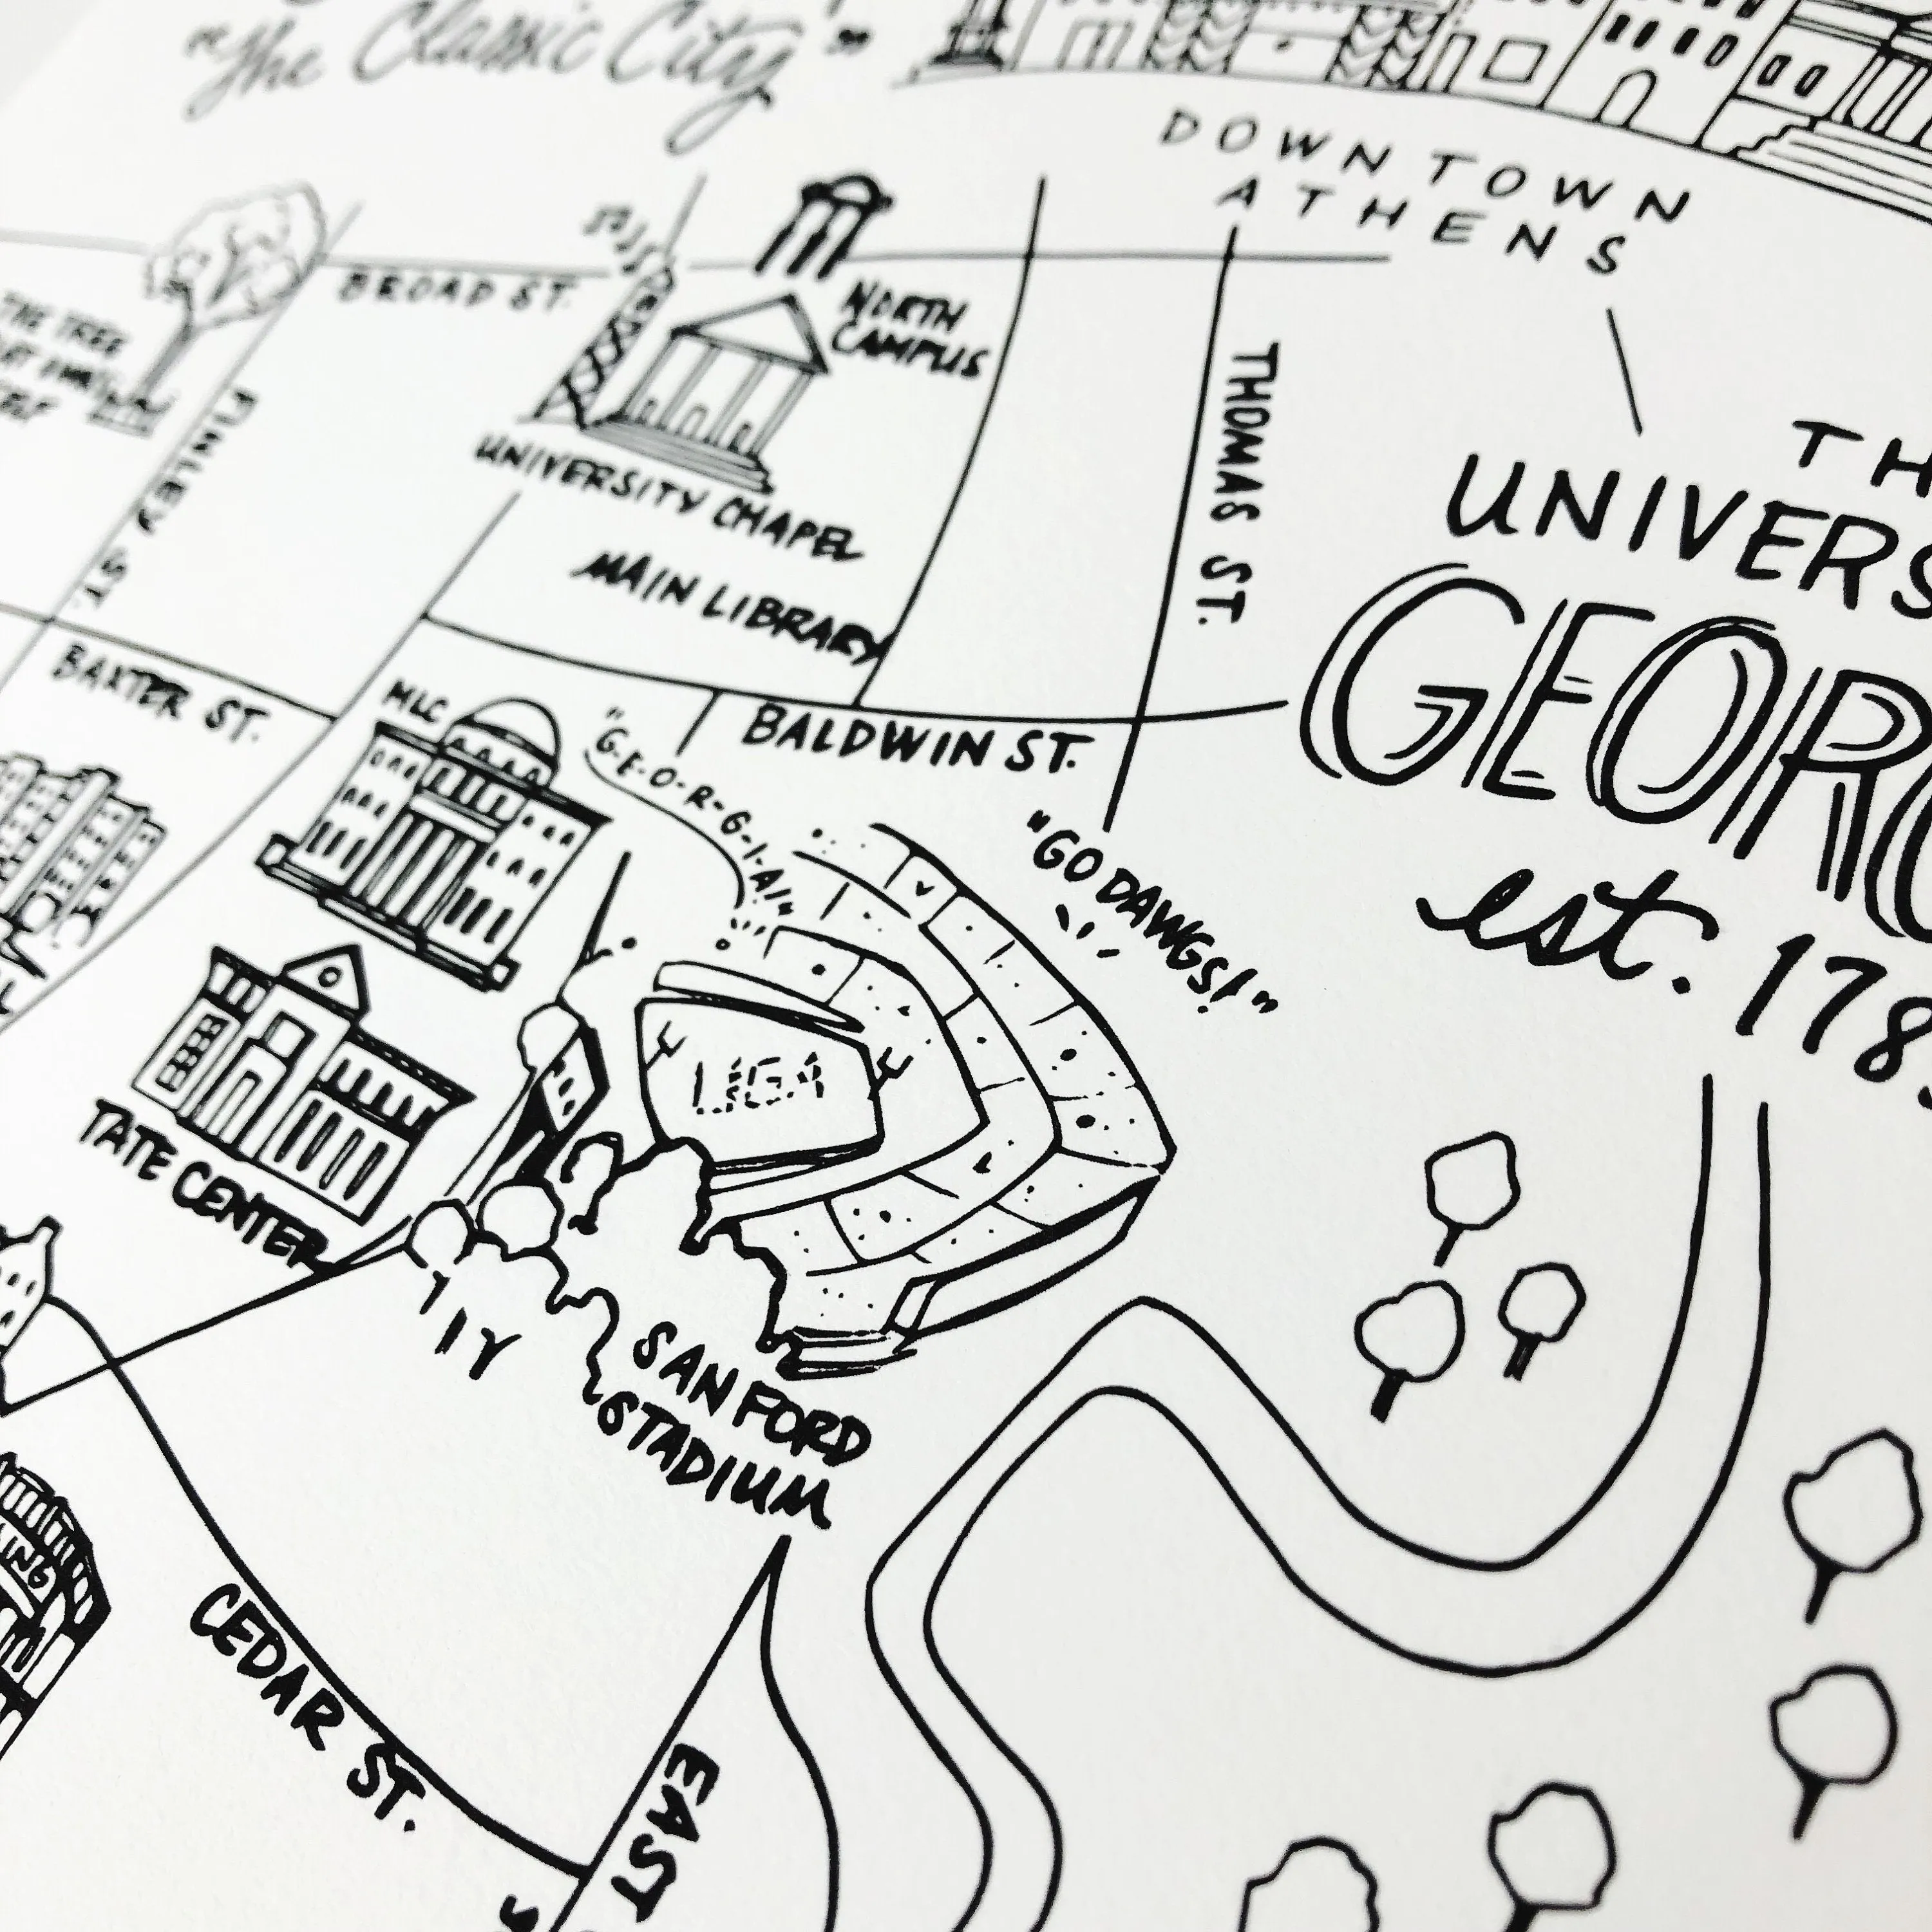 "The Classic City"
DOWNTOWN
ATHENS
BROAD ST.
NORTH
CAMPUS
THE TREE
FINLEY ST.
THOMAS ST.
UNIVERSITY CHAPEL
MAIN LIBRARY
TH
UNIVERS
GEORG
est. 178
BAXTER ST.
MLC
BALDWIN ST.
"G-E-O-R-G-I-A!"
"GO DAWGS!"
UGA
TATE CENTER
SANFORD
STADIUM
CEDAR ST.
EAST